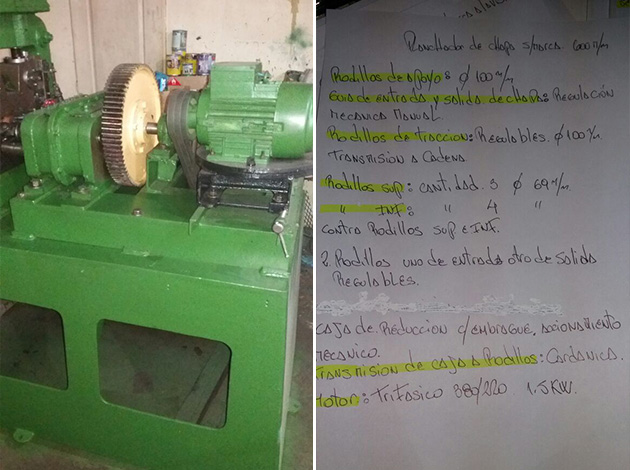 Planchador de chapa s/marca 600 m/m
Rodillos de apoyo: ∅ 100 m/m
Guia de entrada y salida de chapa: Regulación
Mecanica Manual.
Rodillos de traccion: Regulables. ∅ 100 m/m.
Transmision a Cadena
Rodillos sup: Cantidad. 3 ∅ 69 m/m.
" INF: " 4 "
Contra Rodillos sup e INF.
2. Rodillos uno de entrada otro de salida
Regulables.
Caja de Reduccion c/embrague, accionamiento
Mecanico.
Transmision de caja a Rodillos: Cardanica.
Motor: Trifasico 380/220 1.5KW.